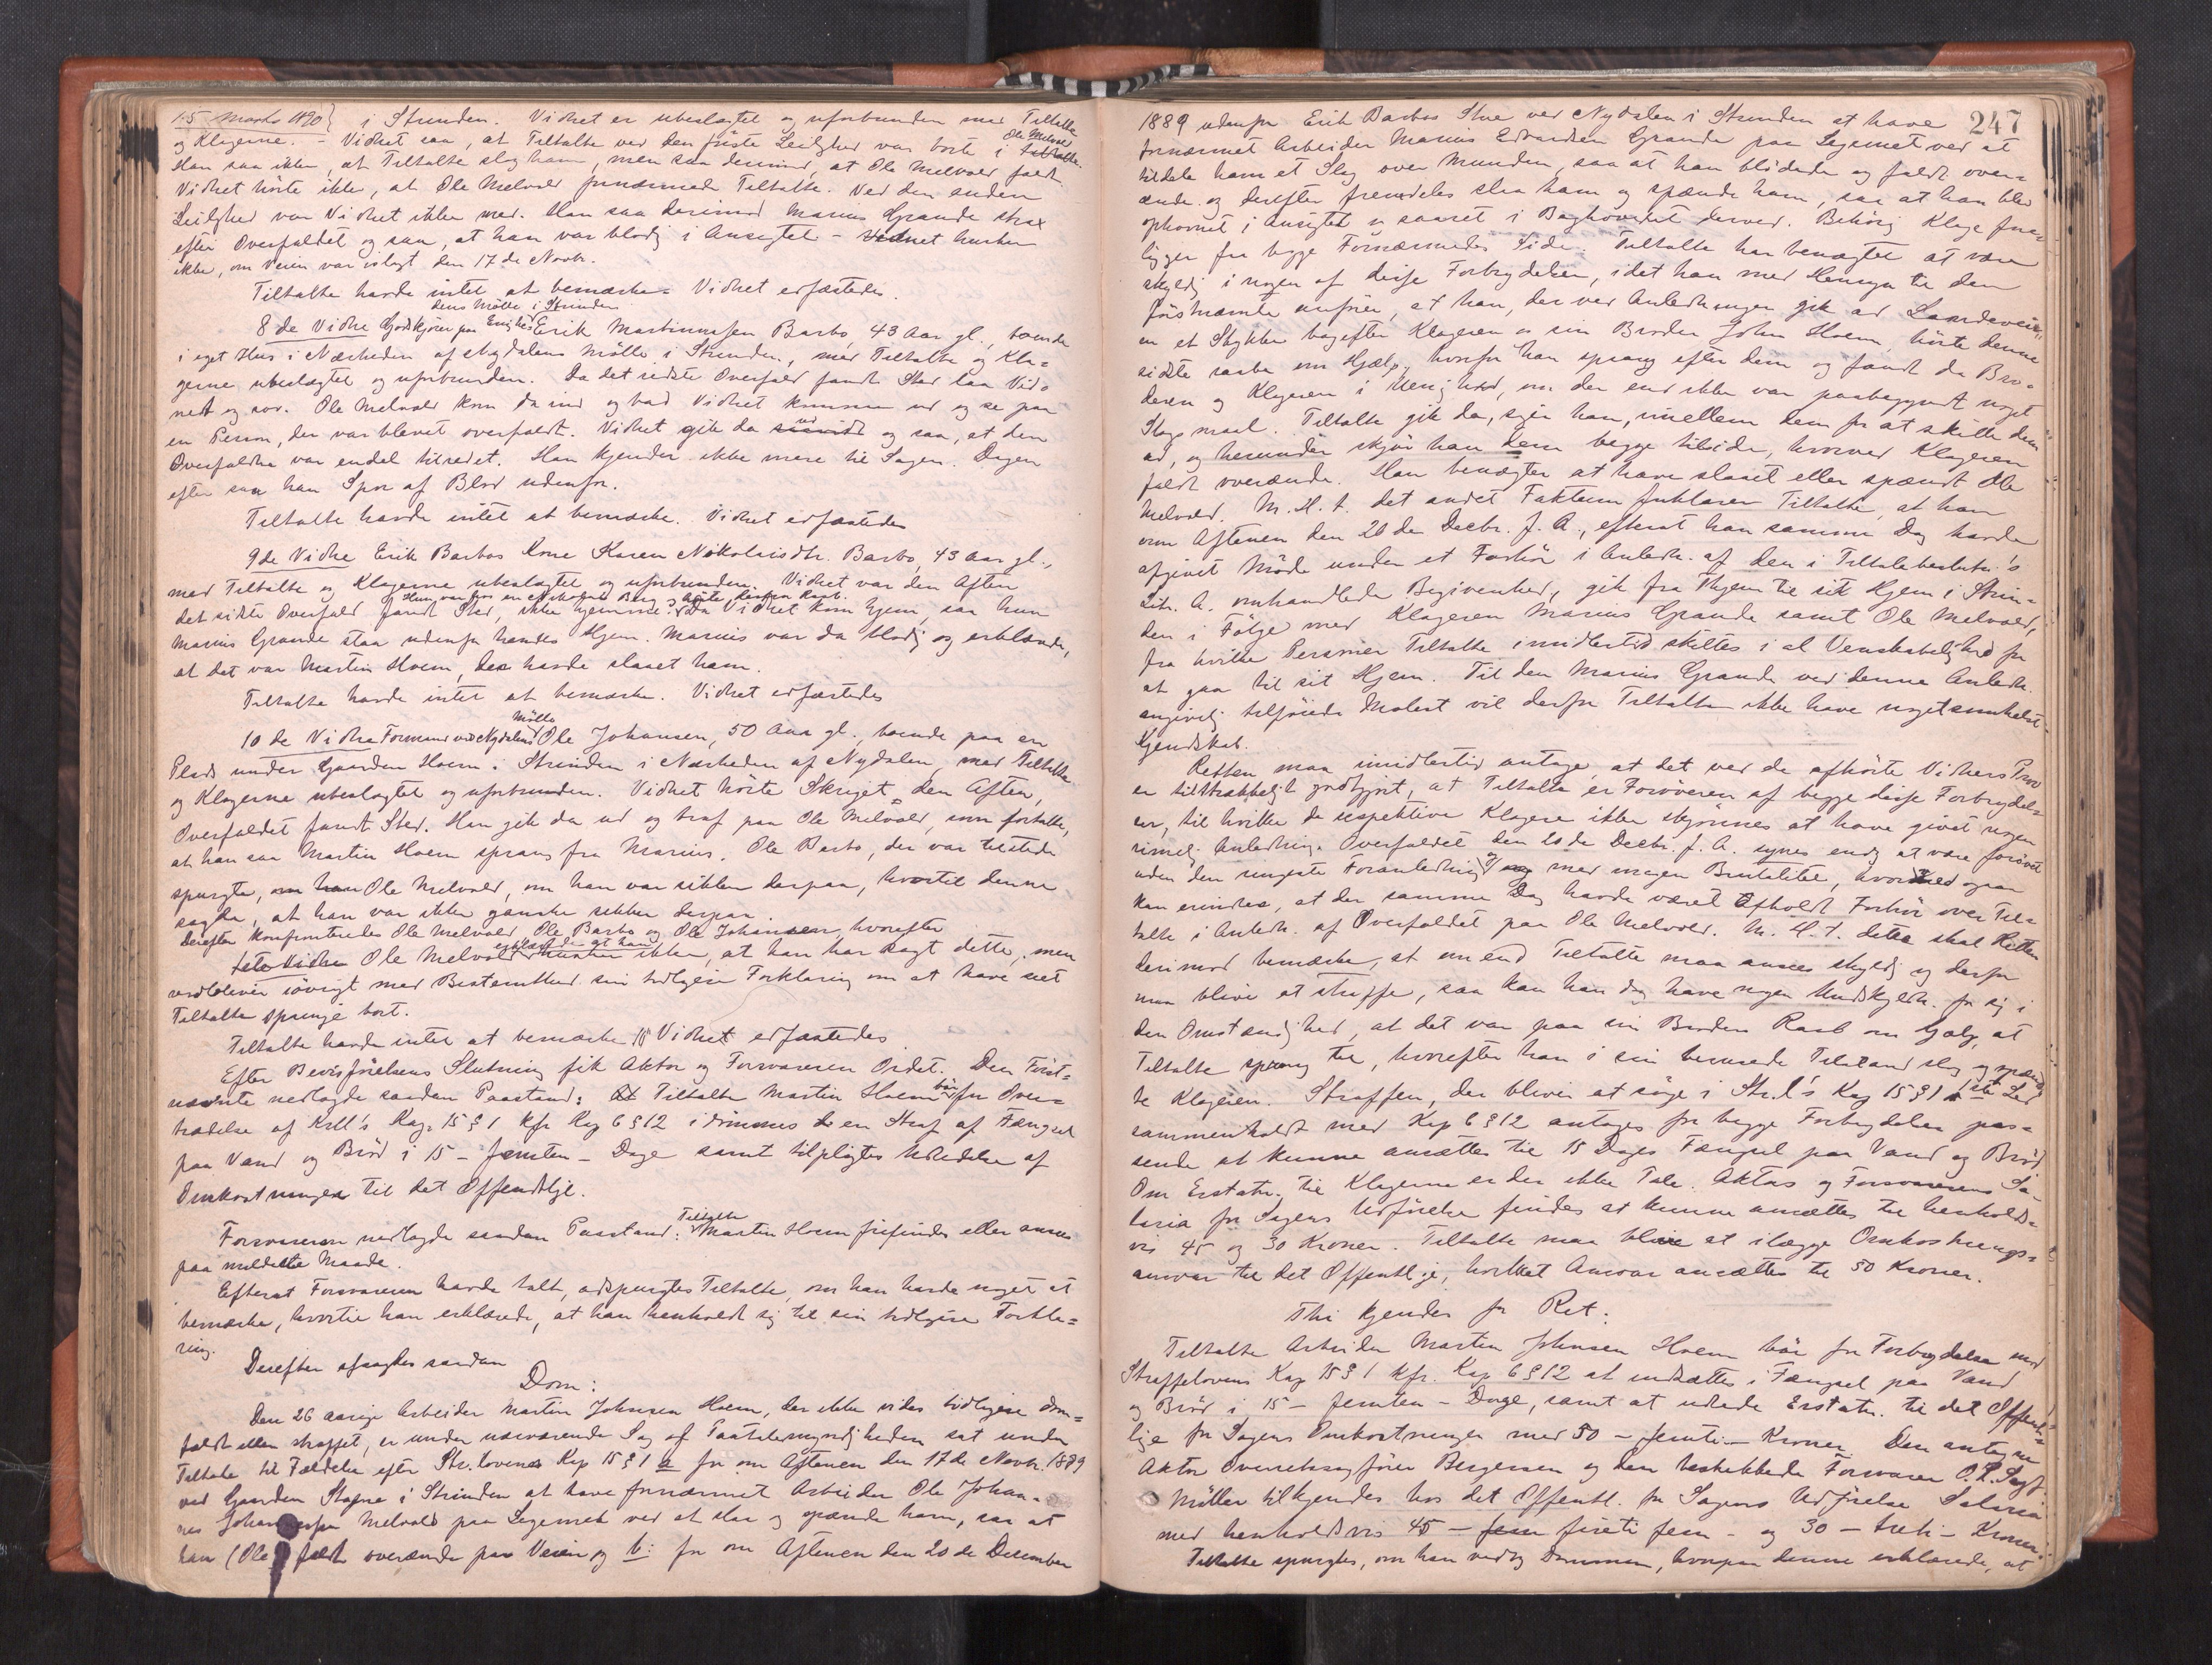 15 Marts 1890} i Strinden. Vidnet er ubeslægtet og uforbunden med Tiltalte
og Klagerne. - Vidnet saa, at Tiltalte ved den første Leilighed var borte i Ole Melvold tiltalte.
Han saa ikke, at Tiltalte slog ham, men saa derimod, at Ole Melvold faldt.
Vidnet hørte ikke, at Ole Melvold fornærmede Tiltalte. Ved den anden
Leilighed var Vidnet ikke med. Han saa derimod Marius Grande strax
efter Overfaldet og saa, at han var blodig i Ansigtet - Vidnet husker
ikke, om Veien var islagt den 17de Novbr.
Tiltalte havde intet at bemærke. Vidnet edfæstedes.
dens Mølle i Strinden
8de Vidne Godskjører paa Erik Martinussen Barbo, 43 Aar gl., boende
i eget Hus i Nærheden af Nydalens Mølle i Strinden, med Tiltalte og Kla-
gerne ubeslægtet og uforbunden. Da det sidste Overfald fandt Sted laa Vid-
net og sov. Ole Melvold kom da ind og bad Vidnet komme ud og se paa
en Person, der var blevet overfaldt. Vidnet gik da ud og saa, at den
Overfaldne var endel tilredet. Han kjender ikke mere til Sagen. Dagen
efter saa han Spor af Blod udenfor.
Tiltalte havde intet at bemærke. Vidnet edfæstedes
9de Vidne Erik Barbos Kone Karen Nikolaisdtr. Barbo, 43 Aar gl.,
med Tiltalte og Klagerne ubeslægtet og uforbunden. Vidnet var den Aften
Hun var hos en Berg og hørte Raab.
det sidste Overfald fandt Sted, ikke hjemme. Da Vidnet kom hjem, saa hun
Marius Grande staa udenfor hendes Hjem. Marius var da blodig og erklærede,
at det var Martin Hoem, der havde slaaet ham.
Tiltalte havde intet at bemærke. Vidnet edfæstedes
Mølle
10de Vidne Formand ved Nydalens Ole Johansen, 50 Aar gl., boende paa en
Plads under Gaarden Hoem i Strinden i Nærheden af Nydalen, med Tiltalte
og Klagerne ubeslægtet og uforbunden. Vidnet hørte Skriget den Aften,
Overfaldet fandt Sted. Han gik da ud og traf paa Ole Melvold, som fortalte,
at han saa Martin Hoem sprang fra Marius. Ole Barbo, der var tilstede
spurgte, om han Ole Melvold, om han var sikker derpaa, hvortil denne
sagde, at han var ikke ganske sikker derpaa.
Derefter konfronteredes Ole Melvold, Ole Barbo og Ole Johansen, hvorefter
erklærede at han
1ste Vidne Ole Melvold husker ikke, at han har sagt dette, men
vedbliver iøvrigt med Bestemthed sin tidligere Forklaring om at have seet
Tiltalte springe bort.
Tiltalte havde intet at bemærke. Vidnet edfæstedes
Efter Bevisførelsens Slutning fik Aktor og Forsvareren Ordet. Den Først-
nævnte nedlagde saadan Paastand: At Tiltalte Martin Hoem bør for Over-
trædelse af Krll's Kap. 15 § 1 kfr Kap 6 § 12 idømmes en Straf af Fængsel
paa Vand og Brød i 15 - femten - Dage samt tilpligtes Udredelse af
Omkostninger til det Offentlige.
Forsvareren nedlagde saadan Paastand: Tiltalte Martin Hoem frifindes eller ansees
paa mildeste Maade.
Efterat Forsvareren havde talt, adspurgtes Tiltalte, om han havde noget at
bemærke, hvortil han erklærede, at han henholdt sig til sin tidligere Forkla-
ring.
Derefter afsagdes saadan
Dom:
Den 26 aarige Arbeider Martin Johnsen Hoem, der ikke vides tidligere dom-
fældt eller straffet, er under nærværende Sag af Paatalemyndigheden sat under
Tiltale til Fældelse efter Str.lovens Kap 15 § 1 a for om Aftenen den 17de Novbr. 1889
ved Gaarden Stafne i Strinden at have fornærmet Arbeider Ole Johan-
nes Johannesen Melvold paa Legemet ved at slaa og spænde ham, saa at
han (Ole) faldt overænde paa Veien og b: for om Aftenen den 20de December
247
1889 udenfor Erik Barbos Stue ved Nydalen i Strinden at have
fornærmet Arbeider Marius Edvardsen Grande paa Legemet ved at
tildele ham et Slag over Munden, saa at han blødede og faldt over-
ænde og derefter fremdeles slaa ham og spænde ham, saa at han blev
ophovnet i Ansigtet og saaret i Baghovedet derved. Behørig Klage fore-
ligger fra begge Fornærmedes Side. Tiltalte har benægtet at være
skyldig i nogen af disse Forbrydelser, idet han med Hensyn til den
førstnævnte anfører, at han, der ved Anledningen gik ad Landeveien
en et Stykke bagefter Klageren og sin Broder John Hoem, hørte denne
sidste raabe om Hjælp, hvorfor han sprang efter dem og fandt da Bro-
deren og Klageren i Uenighed, om der end ikke var paabegyndt noget
Slagsmaal. Tiltalte gik da, siger han, imellem dem for at skille dem
ad, og herunder skjøv han dem begge tilside, hvorved Klageren
faldt overænde. Han benægter at have slaaet eller spændt Ole
Melvold. M. H. t. det andet Faktum forklarer Tiltalte, at han
om Aftenen den 20de Decbr. f. A., efterat han samme Dag havde
afgivet Møde under et Forhør i Anledn. af den i Tiltalebeslutn.'s
Litr. a. omhandlede Begivenhed, gik fra Thjem til sit Hjem i Strin-
den i Følge med Klageren Marius Grande samt Ole Melvold,
fra hvilke Personer Tiltalte imidlertid skiltes i al Venskabelighed for
at gaa til sit Hjem. Til den Marius Grande ved denne Anledn.
angivelig tilføiede Molest vil derfor Tiltalte ikke have noget somhelst
Kjendskab.
Retten maa imidlertid antage, at det ved de afhørte Vidners Prov
er tilstrækkeligt godtgjort, at Tiltalte er Forøveren af begge disse Forbrydel-
ser, til hvilke de respektive Klagere ikke skjønnes at have givet nogen
rimelig Anledning. Overfaldet den 20de Decbr. f. A. synes endog at være forøvet
uden den ringeste Foranledning og med megen Brutalitet, hvorved ogsaa
kan erindres, at der samme Dag havde været afholdt Forhør over Til-
talte i Anledn. af Overfaldet paa Ole Melvold. M. H. t. dette skal Retten
derimod bemærke, at om end Tiltalte maa ansees skyldig og derfor
maa blive at straffe, saa kan han dog have nogen Undskyldn. for sig i
den Omstændighed, at det var paa sin Broders Raab om Hjælp, at
Tiltalte sprang til, hvorefter han i sin berusede Tilstand slog og spænd-
te Klageren. Straffen, der bliver at søge i Str.l's Kap 15 § 1 1ste Led
sammenholdt med Kap 6 § 12 antages for begge Forbrydelser pas-
sende at kunne ansættes til 15 Dages Fængsel paa Vand og Brød
Om Erstatn. til Klagerne er der ikke Tale. Aktors og Forsvarerens Sa-
laria for Sagens Udførelse findes at kunne ansættes til henholds-
vis 45 og 30 Kroner. Tiltalte maa blive at ilægge Omkostnings-
ansvar til det Offentlige, hvilket Ansvar ansættes til 50 Kroner.
Thi kjendes for Ret:
Tiltalte Arbeider Martin Johnsen Hoem bør for Forbrydelse mod
Straffelovens Kap 15 § 1 kfr. Kap. 6 § 12 at indsættes i Fængsel paa Vand
og Brød i 15 - femten - Dage, samt at udrede Erstatn. til det Offent-
lige for Sagens Omkostninger med 50 - femti - Kroner. Den antagne
Aktor Overretssagfører Bergersen og den beskikkede Forsvarer O.R.Sagf.
Müller tilkjendes hos det Offentl. for Sagens Udførelse Salaria
med henholdsvis 45 - firti fem - og 30 - treti - Kroner.
Tiltalte spurgtes, om han vedtog Dommen, hvorpaa denne erklærede, at